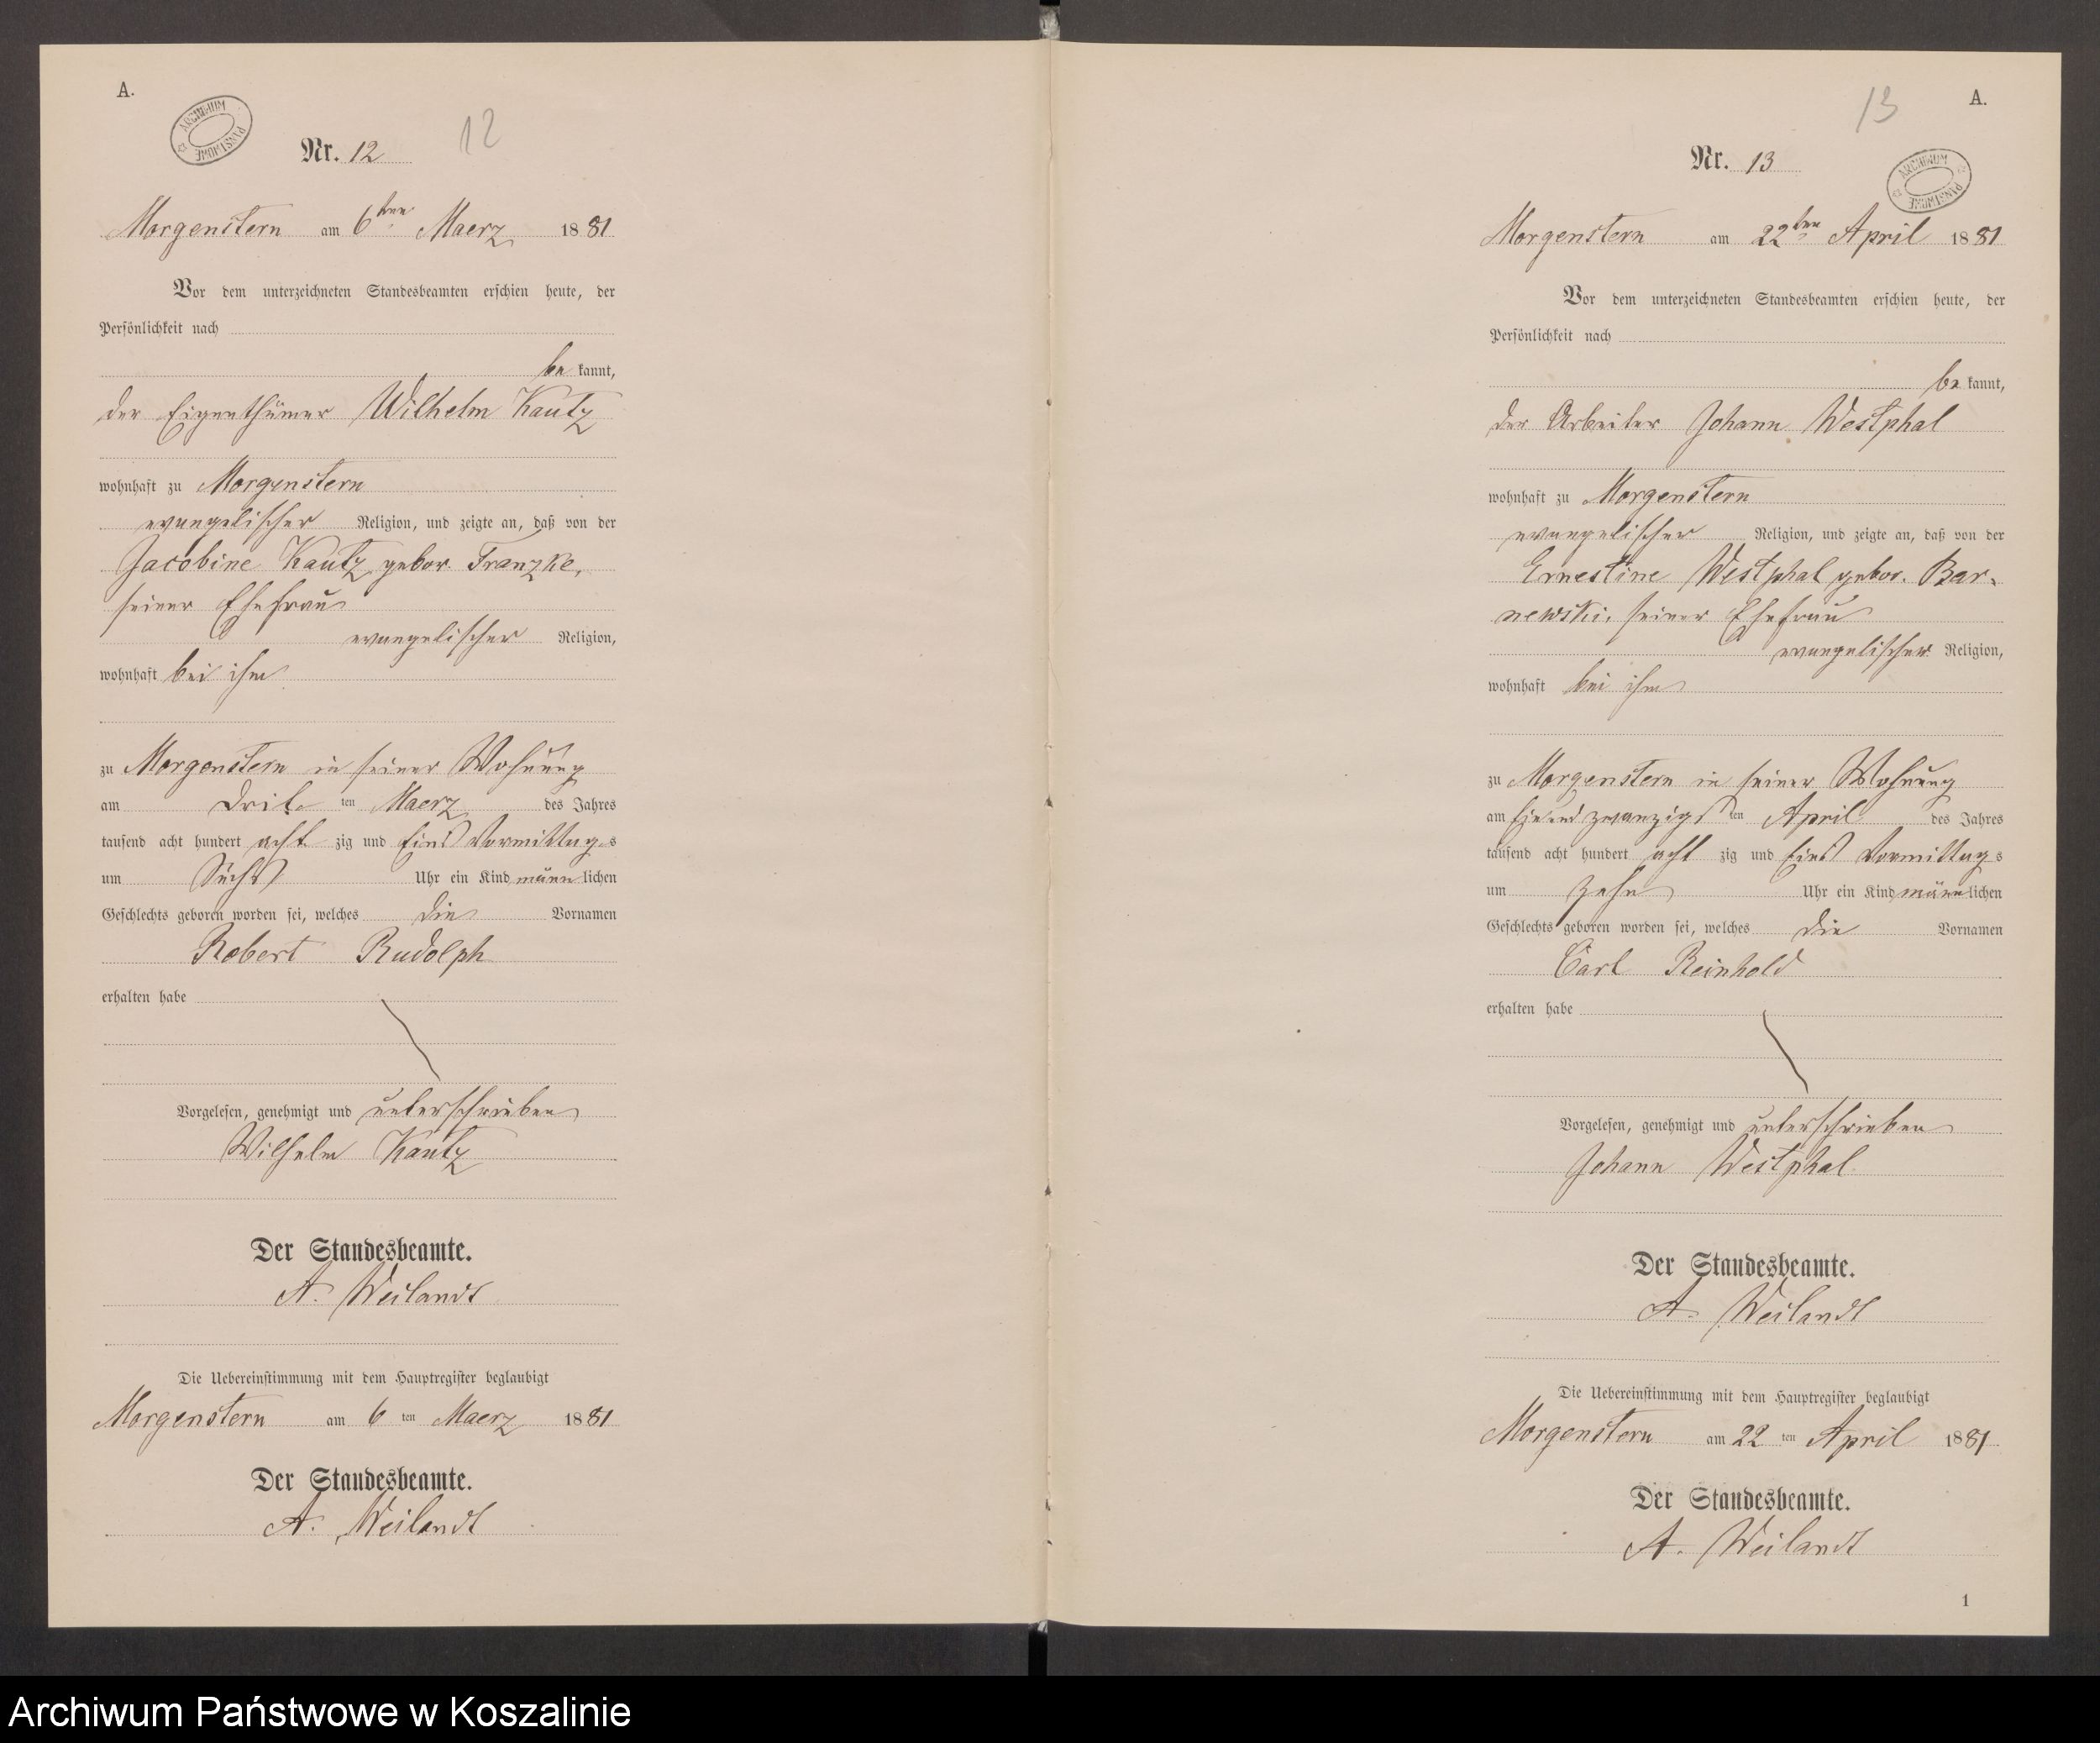 A.
ARCHIWUM PAŃSTWOWE
12
Nr. 12
Morgenstern am 6ten Maerz 1881
Vor dem unterzeichneten Standesbeamten erschien heute, der
Persönlichkeit nach
be kannt,
der Eigenthümer Wilhelm Kautz
wohnhaft zu Morgenstern
evangelischer Religion, und zeigte an, daß von der
Jacobine Kautz gebor. Franzke,
seiner Ehefrau
evangelischer Religion,
wohnhaft bei ihm
zu Morgenstern in seiner Wohnung
am Drit ten Maerz des Jahres
tausend acht hundert acht zig und Eins Vormittag s
um Sechs Uhr ein Kind männ lichen
Geschlechts geboren worden sei, welches die Vornamen
Robert Rudolph
erhalten habe
Vorgelesen, genehmigt und unterschrieben
Wilhelm Kautz
Der Standesbeamte.
A. Weilandt
Die Uebereinstimmung mit dem Hauptregister beglaubigt
Morgenstern am 6 ten Maerz 1881
Der Standesbeamte.
A. Weilandt
13
A.
Nr. 13
ARCHIWUM PAŃSTWOWE
Morgenstern am 22ten April 1881
Vor dem unterzeichneten Standesbeamten erschien heute, der
Persönlichkeit nach
be kannt,
der Arbeiter Johann Westphal
wohnhaft zu Morgenstern
evangelischer Religion, und zeigte an, daß von der
Ernestine Westphal gebor. Bar-
newski, seiner Ehefrau
evangelischer Religion,
wohnhaft bei ihm
zu Morgenstern in seiner Wohnung
am Einundzwanzigs ten April des Jahres
tausend acht hundert acht zig und Eins Vormittag s
um zehn Uhr ein Kind männ lichen
Geschlechts geboren worden sei, welches die Vornamen
Carl Reinhold
erhalten habe
Vorgelesen, genehmigt und unterschrieben
Johann Westphal
Der Standesbeamte.
A. Weilandt
Die Uebereinstimmung mit dem Hauptregister beglaubigt
Morgenstern am 22 ten April 1881
Der Standesbeamte.
A. Weilandt
1
Archiwum Państwowe w Koszalinie